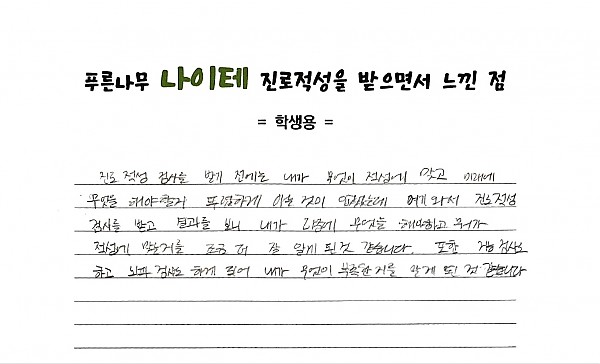 푸른나무 나이테 진로적성을 받으면서 느낀 점
= 학생용 =
진로 적성 검사를 받기 전에는 내가 무엇이 적성에 맞고 미래에
무엇을 해야할지 뚜렷하게 있는 것이 없었는데 여기 와서 진로적성
검사를 받고 결과를 보니 내가 나중에 무엇을 해야하고 뭐가
적성에 맞는거를 조금 더 잘 알게 된것 같습니다. 또한 지능검사도
하고 뇌파 검사도 하게 되어 내가 무엇이 부족한 거를 알게 된 것 같습니다